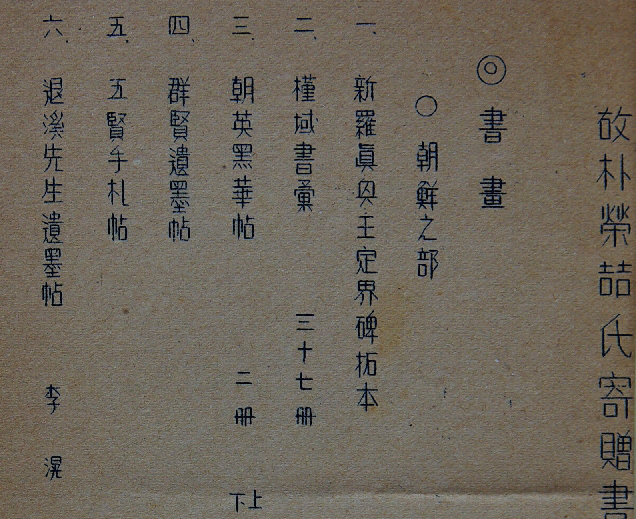 故朴榮喆氏寄贈書
◎書畫
○朝鮮之部
一、新羅眞興王定界碑拓本
二、槿域書彙 三十七册
三、朝英黑華帖 二册 上下
四、群賢遺墨帖
五、五賢手札帖
六、退溪先生遺墨帖 李滉